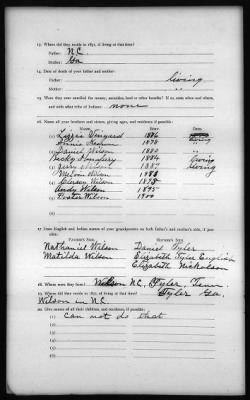 13. Where did they reside in 1851, if living at that time?
Father: N.C.
Mother: Ga
14. Date of death of your father and mother:
Father: living
Mother: "
15. Were they ever enrolled for money, annuities, land or other benefits? If so, state when and where, and with what tribe of Indians: none
16. Name all your brothers and sisters, giving ages, and residence if possible:
(1) Lizzie 1876
(2) Minnie 1878 living
(3) Daniel Wilson 1880 "
(4) Becky 1884 living
(5) Wilson living
(6) Wilson 1888
Wilson
Andy Wilson 1895
Foster Wilson 1900
17. Give English and Indian names of your grandparents on both father's and mother's side, if possible:
FATHER'S SIDE. MOTHER'S SIDE.
Nathaniel Wilson Daniel Tyler
Matilda Wilson Elizabeth Tyler English
Elizabeth Nickolson
18. Where were they born? Wilson N.C. Tyler, Tenn.
19. Where did they reside in 1851, if living at that time? Tyler Ga,
Wilson in N.C.
20. Give names of all their children, and residence, if possible:
(1) Can not do that
(2)
(3)
(4)
(5)